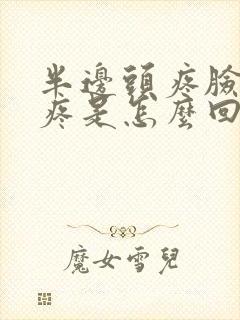 半邊頭疼臉
疼是怎麼回
魔女雪兒